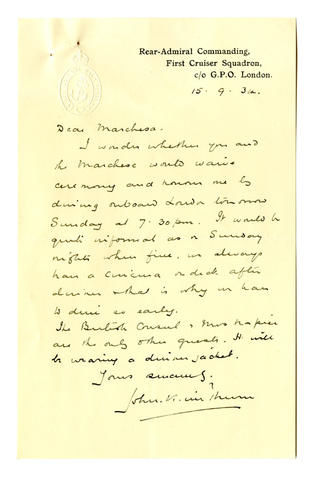 Rear-Admiral Commanding,
First Cruiser Squadron,
c/o G.P.O. London.
15. 9. 34.
Dear Marchesa.
I wonder whether you and
the Marchese would waive
ceremony and honour me by
dining onboard London tomorrow
Sunday at 7.30pm. It would be
quite informal as on Sunday
nights when fine, we always
have a cinema on deck after
dinner & that is why we have
to dine so early.
The British Consul & Mrs Napier
are the only other guests. I will
be wearing a dinner jacket.
Yours sincerely.
John.